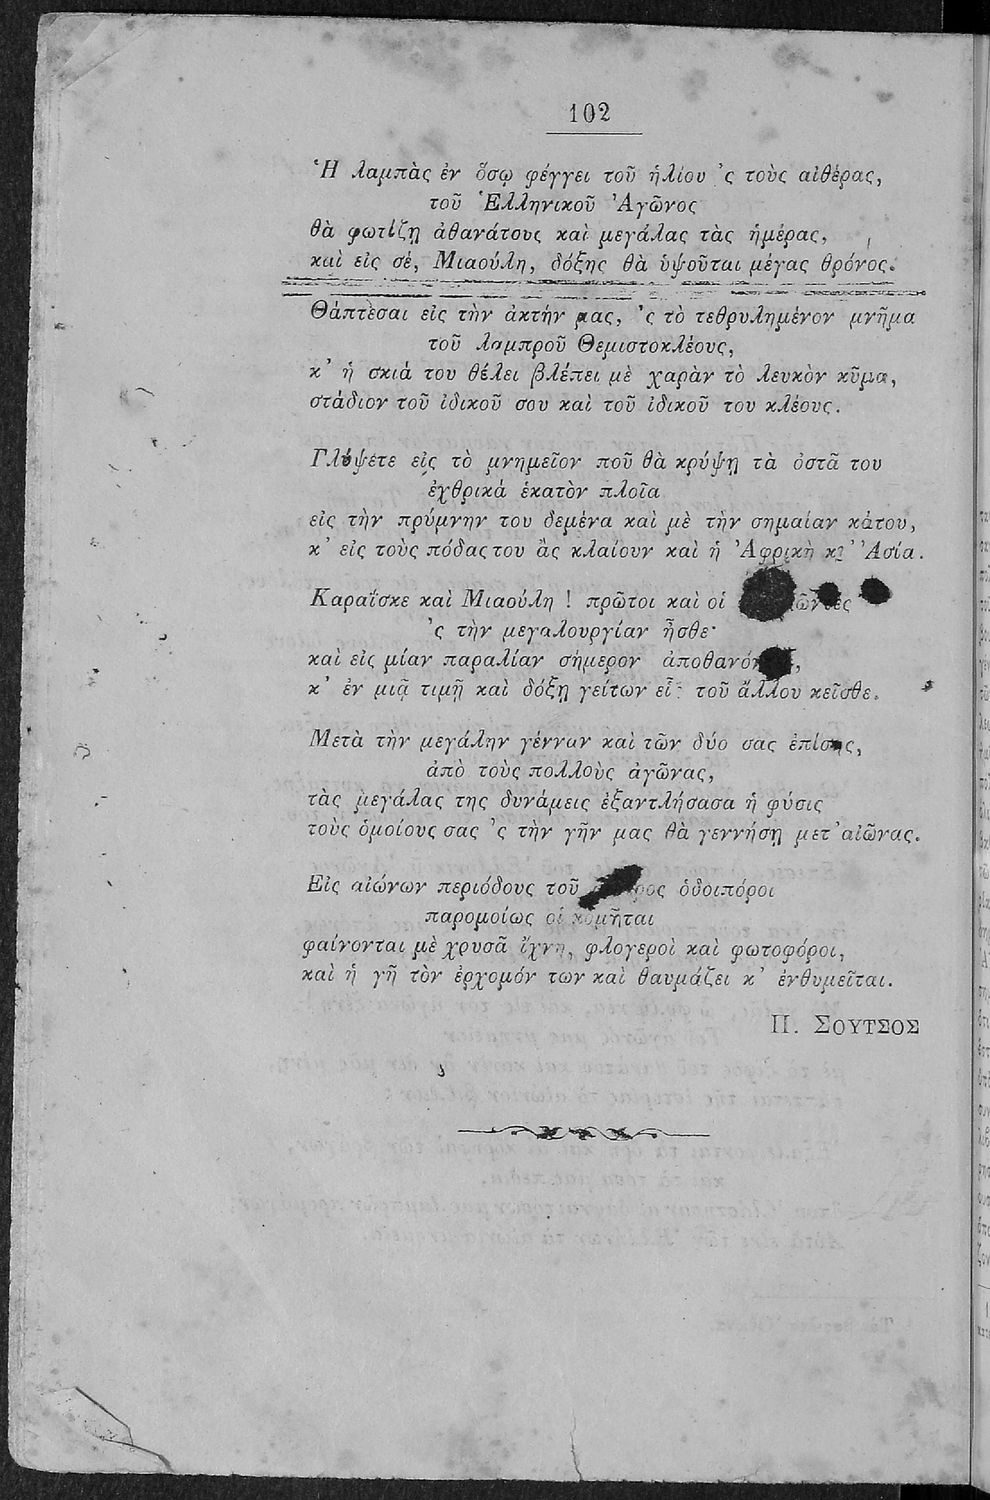 102
Ἡ λαμπὰς ἐν ὅσῳ φέγγει τοῦ ἡλίου 'ς τοὺς αἰθέρας,
τοῦ Ἑλληνικοῦ Ἀγῶνος
θὰ φωτίζῃ ἀθανάτους καὶ μεγάλας τὰς ἡμέρας,
καὶ εἰς σὲ, Μιαούλη, δόξης θὰ ὑψοῦται μέγας θρόνος.
Θάπτεσαι εἰς τὴν ἀκτήν μας, 'ς τὸ τεθρυλημένον μνῆμα
τοῦ λαμπροῦ Θεμιστοκλέους,
κ' ἡ σκιά του θέλει βλέπει μὲ χαρὰν τὸ λευκὸν κῦμα,
στάδιον τοῦ ἰδικοῦ σου καὶ τοῦ ἰδικοῦ του κλέους.
Γλύψετε εἰς τὸ μνημεῖον ποῦ θὰ κρύψῃ τὰ ὀστᾶ του
ἐχθρικά ἑκατὸν πλοῖα
εἰς τὴν πρύμνην του δεμένα καὶ μὲ τὴν σημαίαν κάτου,
κ' εἰς τοὺς πόδας του ἂς κλαίουν καὶ ἡ Ἀφρικὴ κ' Ἀσία.
Καραΐσκε καὶ Μιαούλη ! πρῶτοι καὶ οἱ
'ς τὴν μεγαλουργίαν ἦσθε·
καὶ εἰς μίαν παραλίαν σήμερον
κ' ἐν μιᾷ τιμῇ καὶ δόξῃ γείτων εἷς τοῦ ἄλλου κεῖσθε.
Μετὰ τὴν μεγάλην γένναν καὶ τῶν δύο σας ἐπίσης,
ἀπὸ τοὺς πολλοὺς ἀγῶνας,
τὰς μεγάλας της δυνάμεις ἐξαντλήσασα ἡ φύσις
τοὺς ὁμοίους σας 'ς τὴν γῆν μας θὰ γεννήσῃ μετ' αἰῶνας.
Εἰς αἰώνων περιόδους τοῦ ὁδοιπόροι
παρομοίως οἱ κομῆται
φαίνονται μὲ χρυσᾶ ἴχνη, φλογεροὶ καὶ φωτοφόροι,
καὶ ἡ γῆ τὸν ἐρχομόν των καὶ θαυμάζει κ' ἐνθυμεῖται.
Π. ΣΟΥΤΣΟΣ